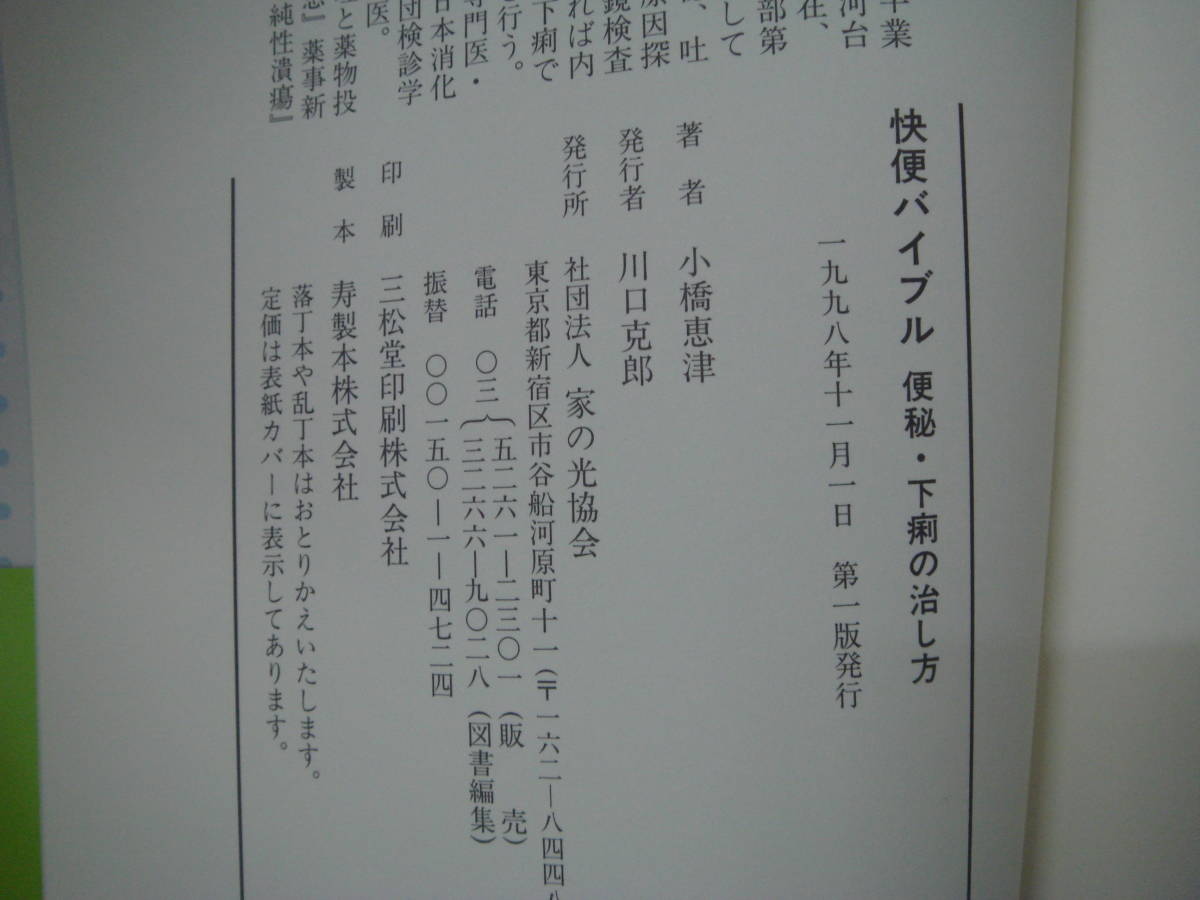 卒業
河台
在、
部第
して
、吐
原因探
鏡検査
れば内
下痢で
行う。
専門医・
日本消化
団検診学
医。
と薬物投
』薬事新
純性潰瘍』
快便バイブル 便秘・下痢の治し方
一九九八年十一月一日 第一版発行
著者 小橋恵津
発行者 川口克郎
発行所 社団法人 家の光協会
東京都新宿区市谷船河原町十一(〒一六二―八四四八
電話 〇三(五二六一―二三〇一(販売)
(三二六六―九〇二八(図書編集)
振替 〇〇一五〇―一―四七二四
印刷 三松堂印刷株式会社
製本 寿製本株式会社
落丁本や乱丁本はおとりかえいたします。
定価は表紙カバーに表示してあります。